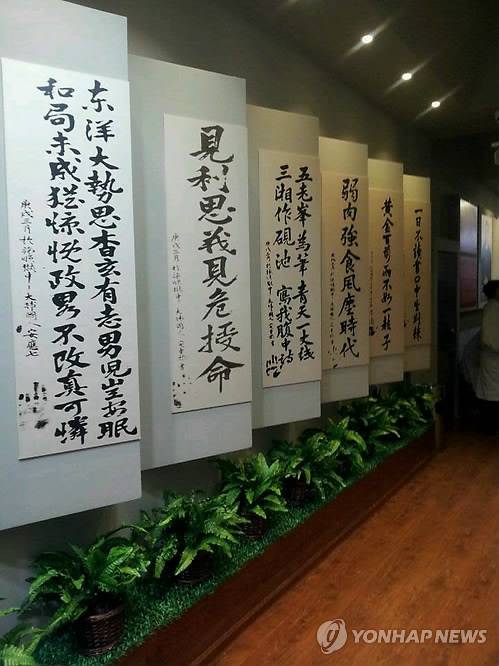 东洋大勢思杳玄有志男児豈安眠
和局未成猶慷慨政畧不改真可憐
庚戌三月 於旅順獄中 大韓國人
見利思義見危授命
庚戌三月 於旅順獄中 大韓國人 安重根 書
五老峯為筆 青天一丈紙
三湘作硯池 寫我腹中詩
弱肉強食風塵時代
黃金百萬兩不如一教子
一日不讀書口中生荊棘
YONHAP NEWS